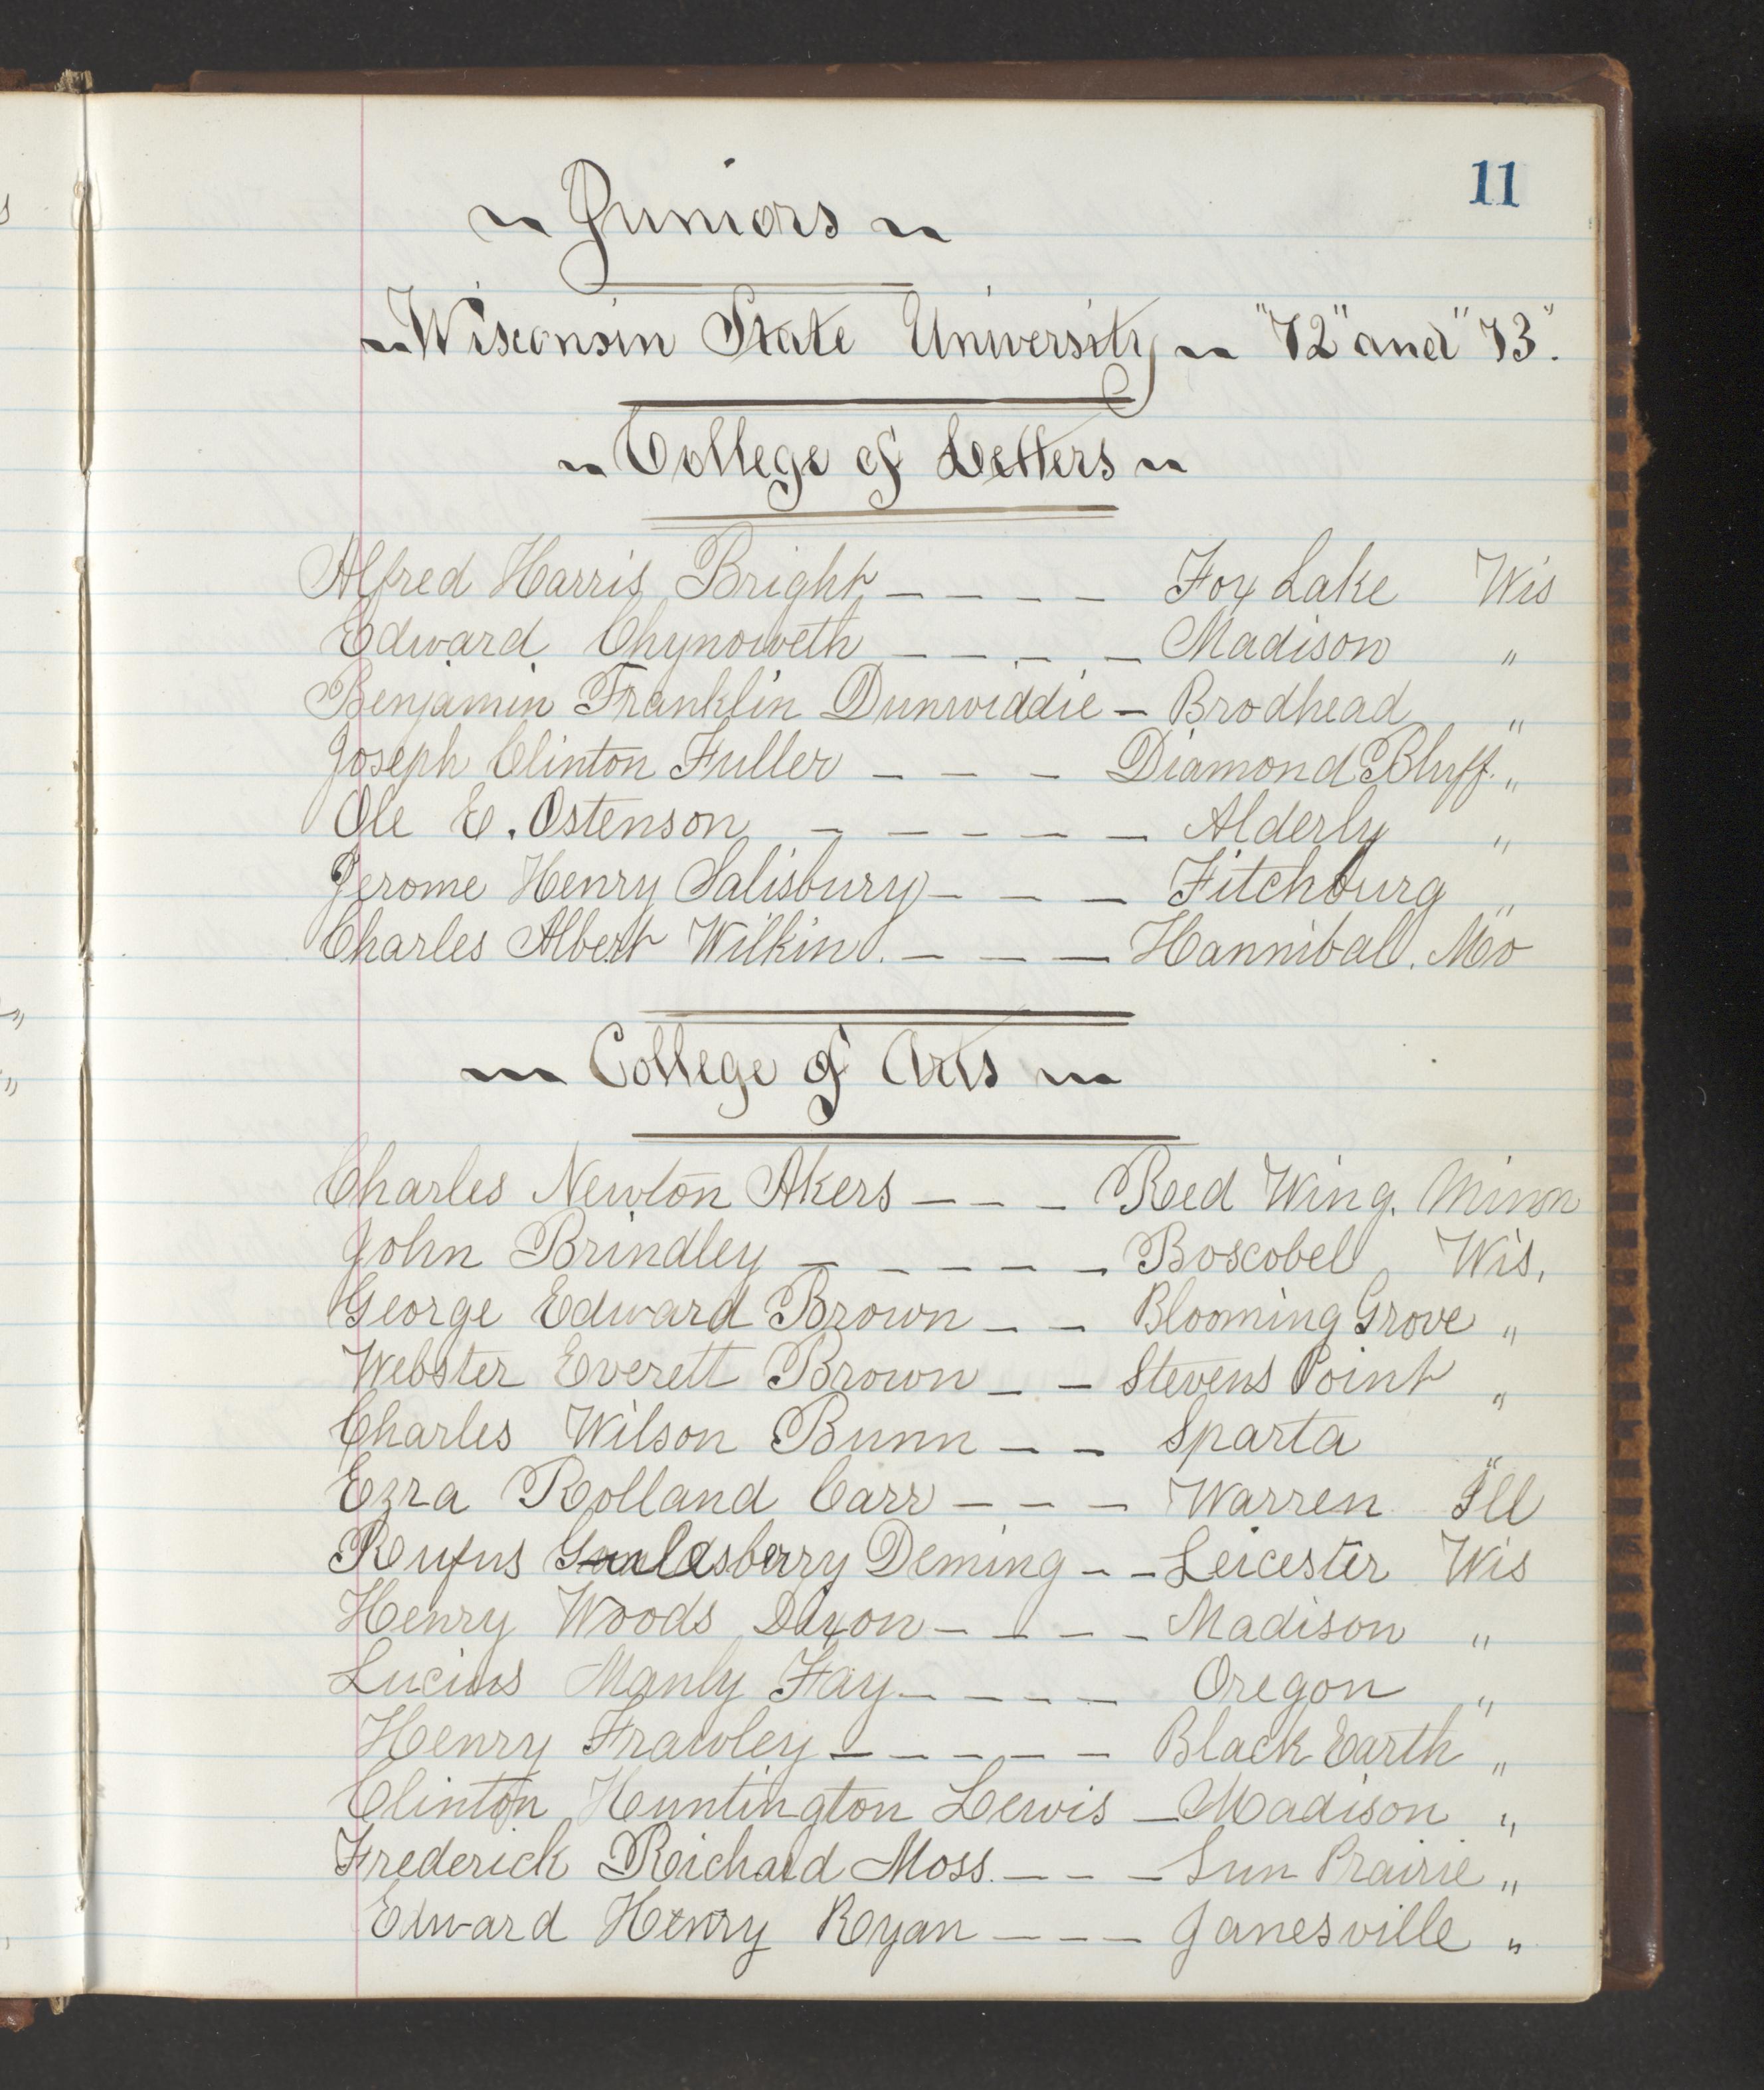 11
~ Juniors ~
~ Wisconsin State University ~ "72" and "73".
~ College of Letters ~
Alfred Harris Bright – – – – Fox Lake Wis
Edward Chynoweth – – – – Madison "
Benjamin Franklin Dunwiddie – Brodhead "
Joseph Clinton Fuller – – – Diamond Bluff. "
Ole E. Ostenson – – – – – Alderly "
Jerome Henry Salisbury – – – Fitchburg "
Charles Albert Wilkin. – – – Hannibal. Mo
~ College of Arts ~
Charles Newton Akers – – – Red Wing. Minn
John Brindley – – – – – Boscobel Wis.
George Edward Brown – – Blooming Grove "
Webster Everett Brown – – Stevens Point "
Charles Wilson Bunn – – Sparta "
Ezra Rolland Carr – – – Warren Ill
Rufus Deming – – Leicester Wis
Henry Woods Dixon – – – – Madison "
Lucius Manly Fay – – – – Oregon "
Henry Frawley – – – – – Black Earth "
Clinton Huntington Lewis – Madison "
Frederick Richard Moss. – – – Sun Prairie "
Edward Henry Ryan – – – Janesville "